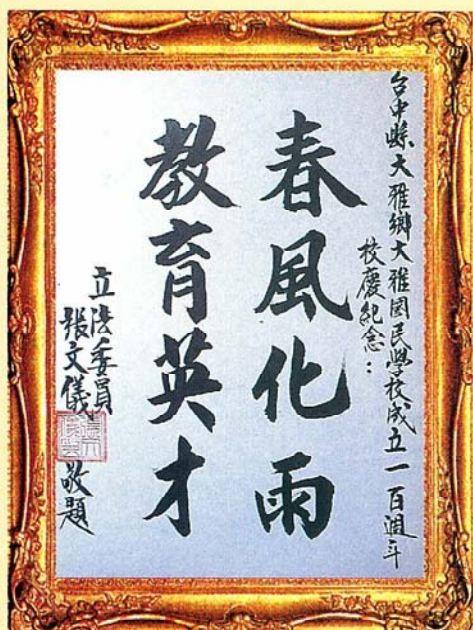 台中縣大雅鄉大雅國民學校成立一百週年
校慶紀念：
春風化雨
教育英才
立法委員
張文儀 敬題